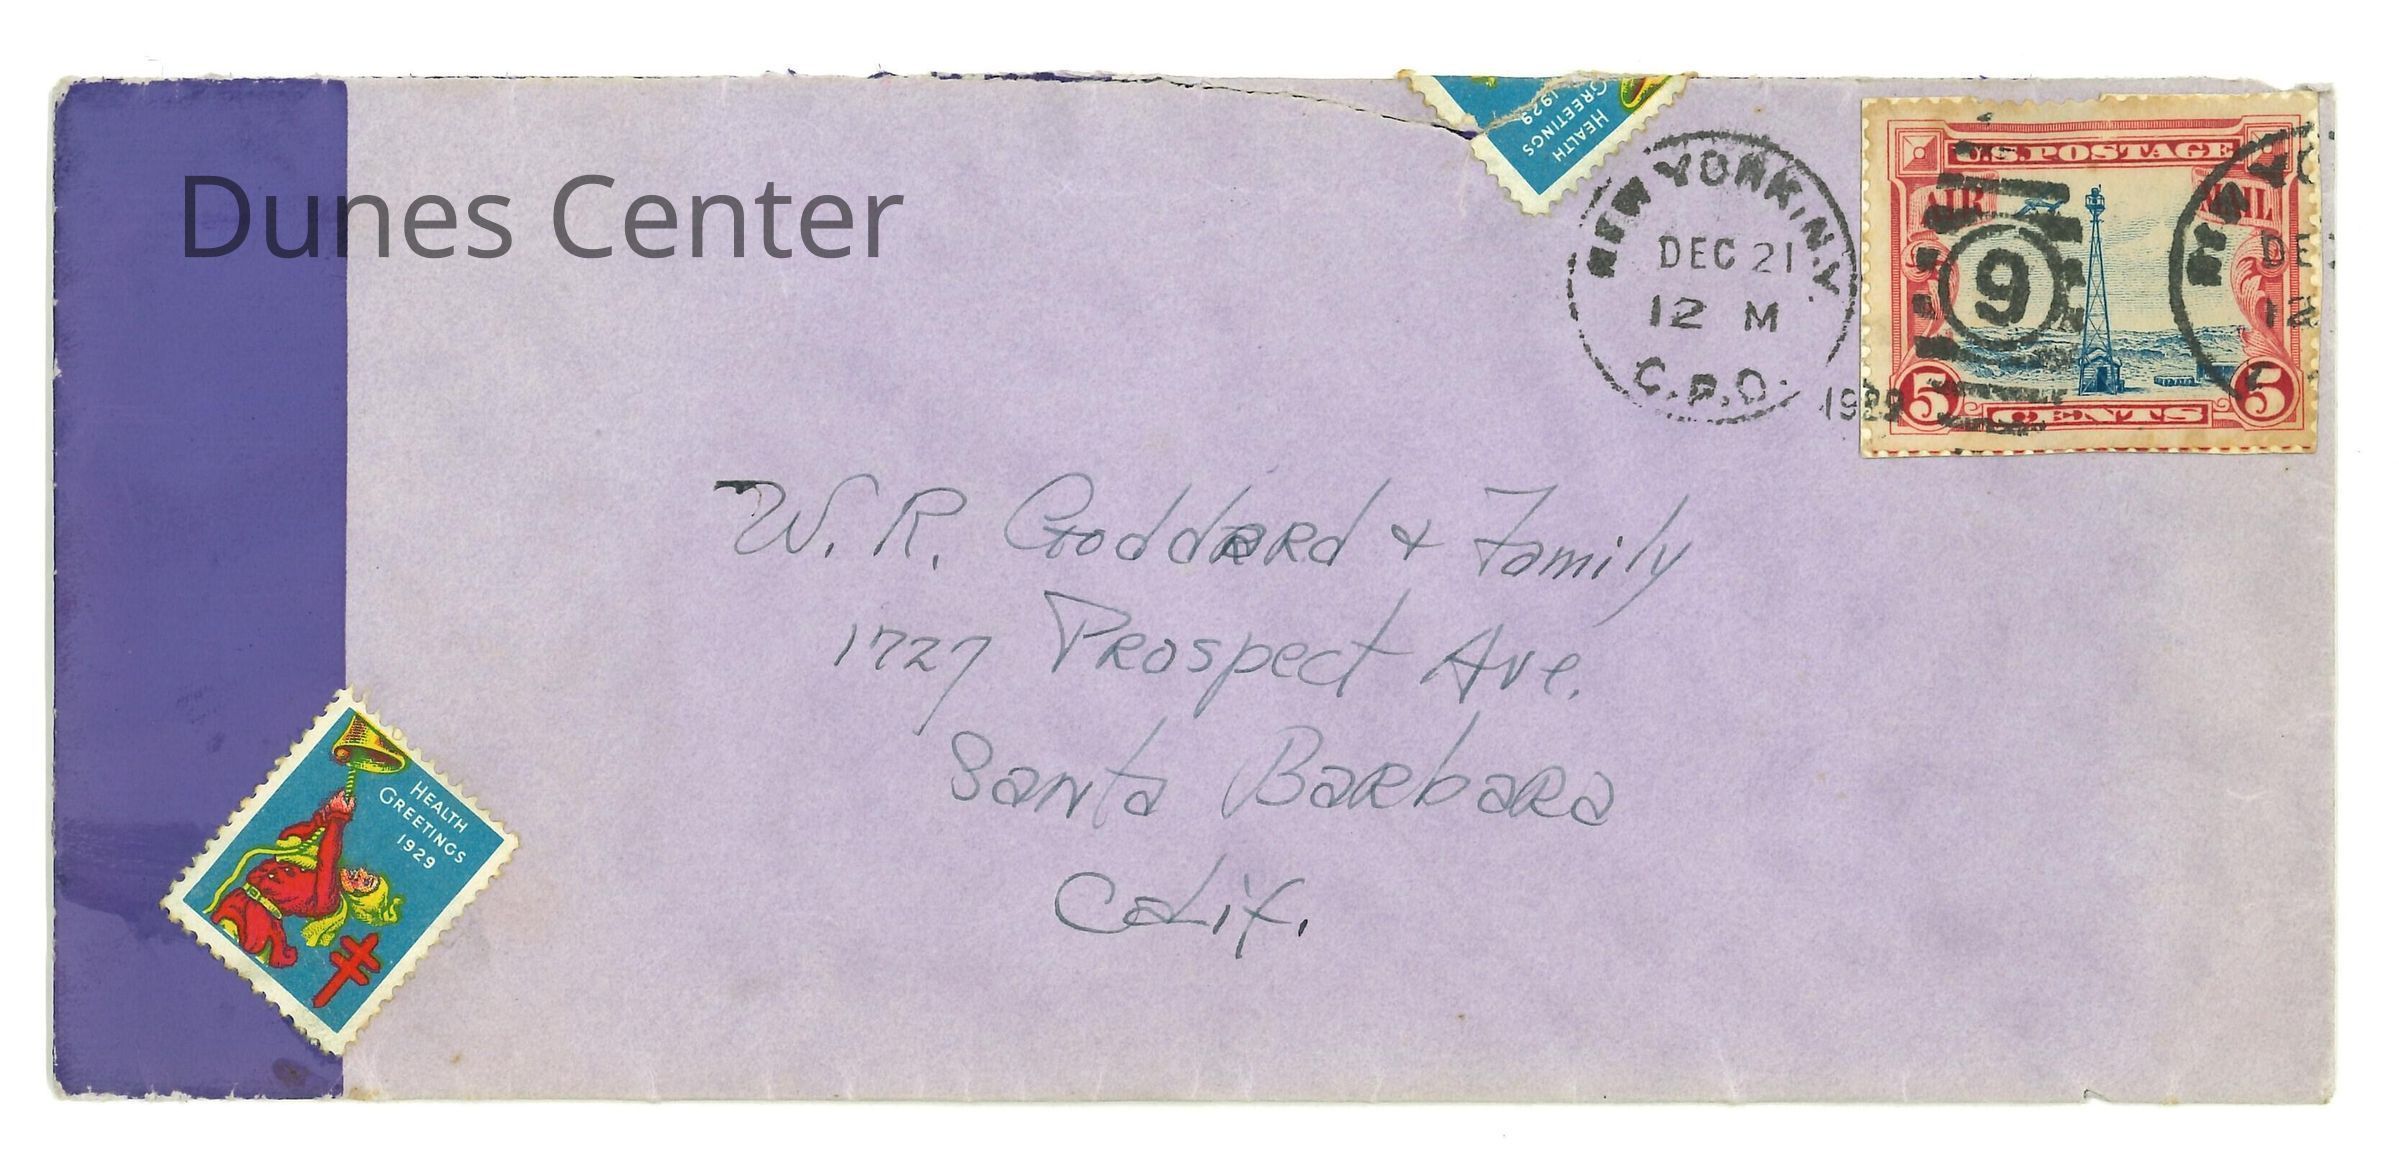 Dunes Center
HEALTH
GREETINGS
1929
NEW YORK, N.Y.
DEC 21
12 M
G.P.O.
1929
9
U.S. POSTAGE
AIR MAIL
5 CENTS 5
DE
12
W. R. Goddard & Family
1727 Prospect Ave.
Santa Barbara
Calif.
HEALTH
GREETINGS
1929